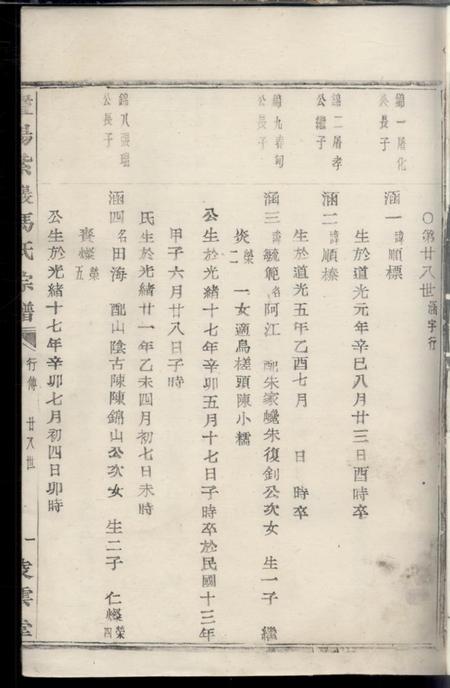 ○第廿八世 涵字行
錦一屠化公長子
涵一 諱順標
生於道光元年辛巳八月廿三日酉時卒
錦二屠孝公繼子
涵二 諱順榛
生於道光五年乙酉七月 日 時卒
錦九 公長子
涵三 諱毓範名阿江 配朱家朱復釗公次女 生一子 繼
炎 榮二 一女適烏槎頭陳小糯
公生於光緒十七年辛卯五月十七日子時卒於民國十三年
甲子六月廿八日子時
氏生於光緒廿一年乙未四月初七日未時
錦八張瑞公長子
涵四 名田海 配山陰古陳陳錦山公次女 生二子 仁燦 榮四
賚燦 榮五
公生於光緒十七年辛卯七月初四日卯時
暨陽紫巖馬氏宗譜 行傳 廿八世 一 凌雲堂